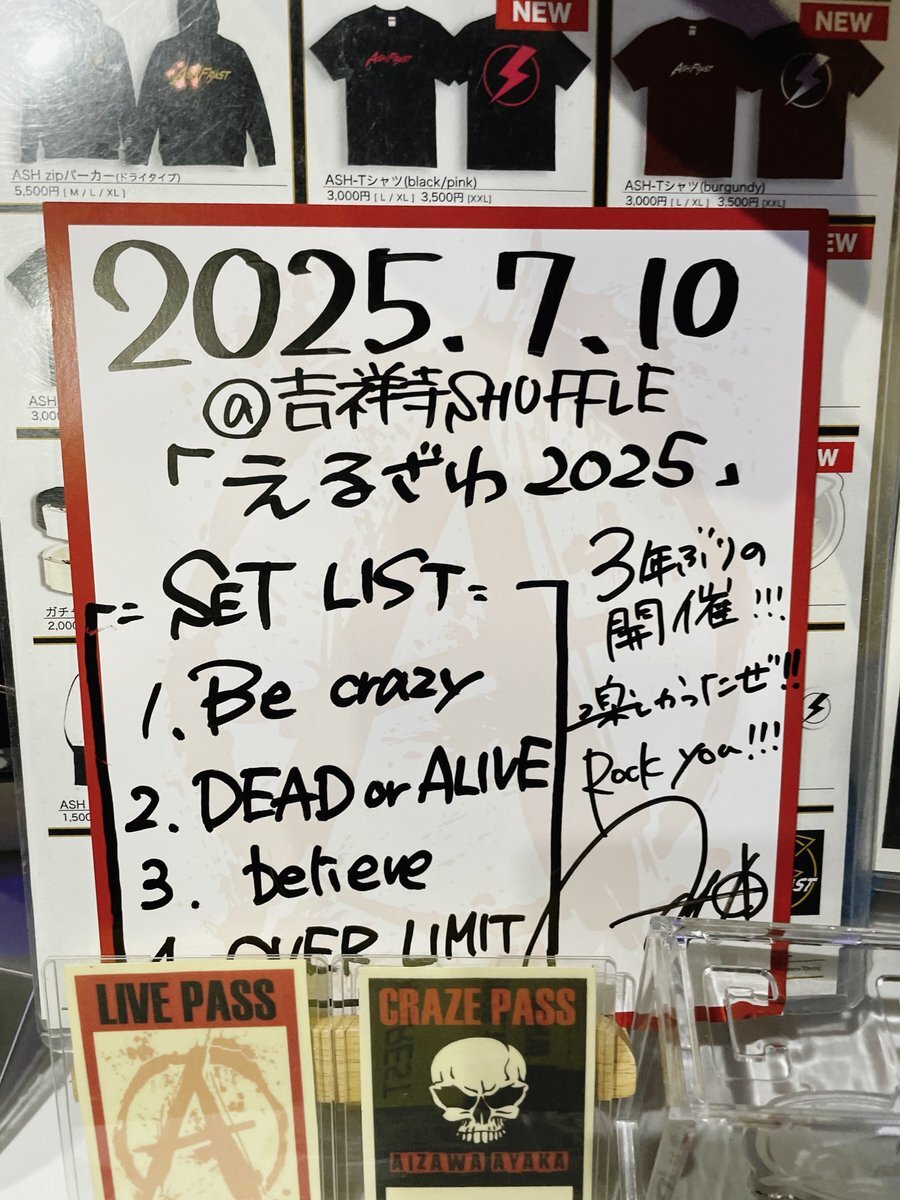 NEW
NEW
ASH FRAST
ASH FRAST
ASH zipパーカー(ドライタイプ)
5,500円 [ M / L / XL ]
ASH-Tシャツ(black/pink)
3,000円 [ L / XL ] 3,500円 [XXL]
ASH-Tシャツ(burgundy)
3,000円 [ L / XL ] 3,500円 [XXL]
2025.7.10
@吉祥寺SHUFFLE
「えるざわ2025」
= SET LIST =
1. Be crazy
2. DEAD or ALIVE
3. believe
4. OVER LIMIT
3年ぶりの
開催!!!
楽しかったぜ!!
Rock you!!!
ASH
3,00
ガチ
2,000
ASH
1,500
LIVE PASS
CRAZE PASS
AIZAWA AYAKA